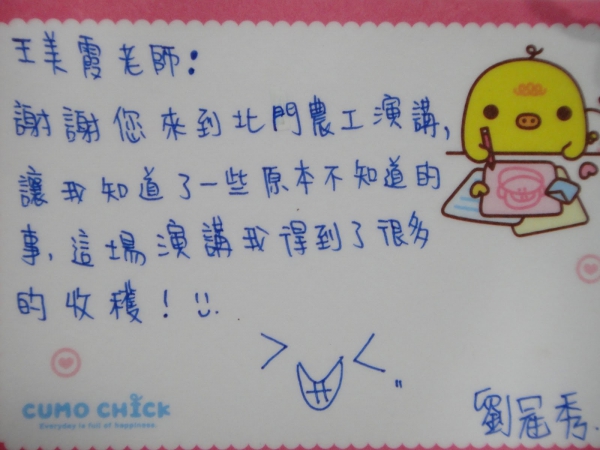 王美霞老師：
謝謝您來到北門農工演講，
讓我知道了一些原本不知道的
事，這場演講我得到了很多
的收穫！
CUMO CHICK
Everyday is full of happiness.
劉冠秀.